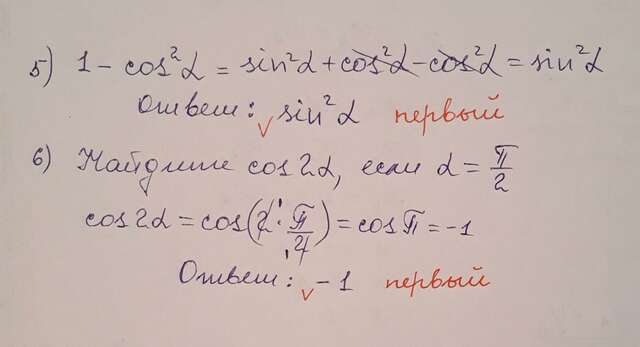 5) 1 - cos²α = sin²α + cos²α - cos²α = sin²α
Ответ: ✓ sin²α первый
6) Найдите cos2α, если α = π/2
cos2α = cos(2 · π/2) = cosπ = -1
Ответ: ✓ -1 первый